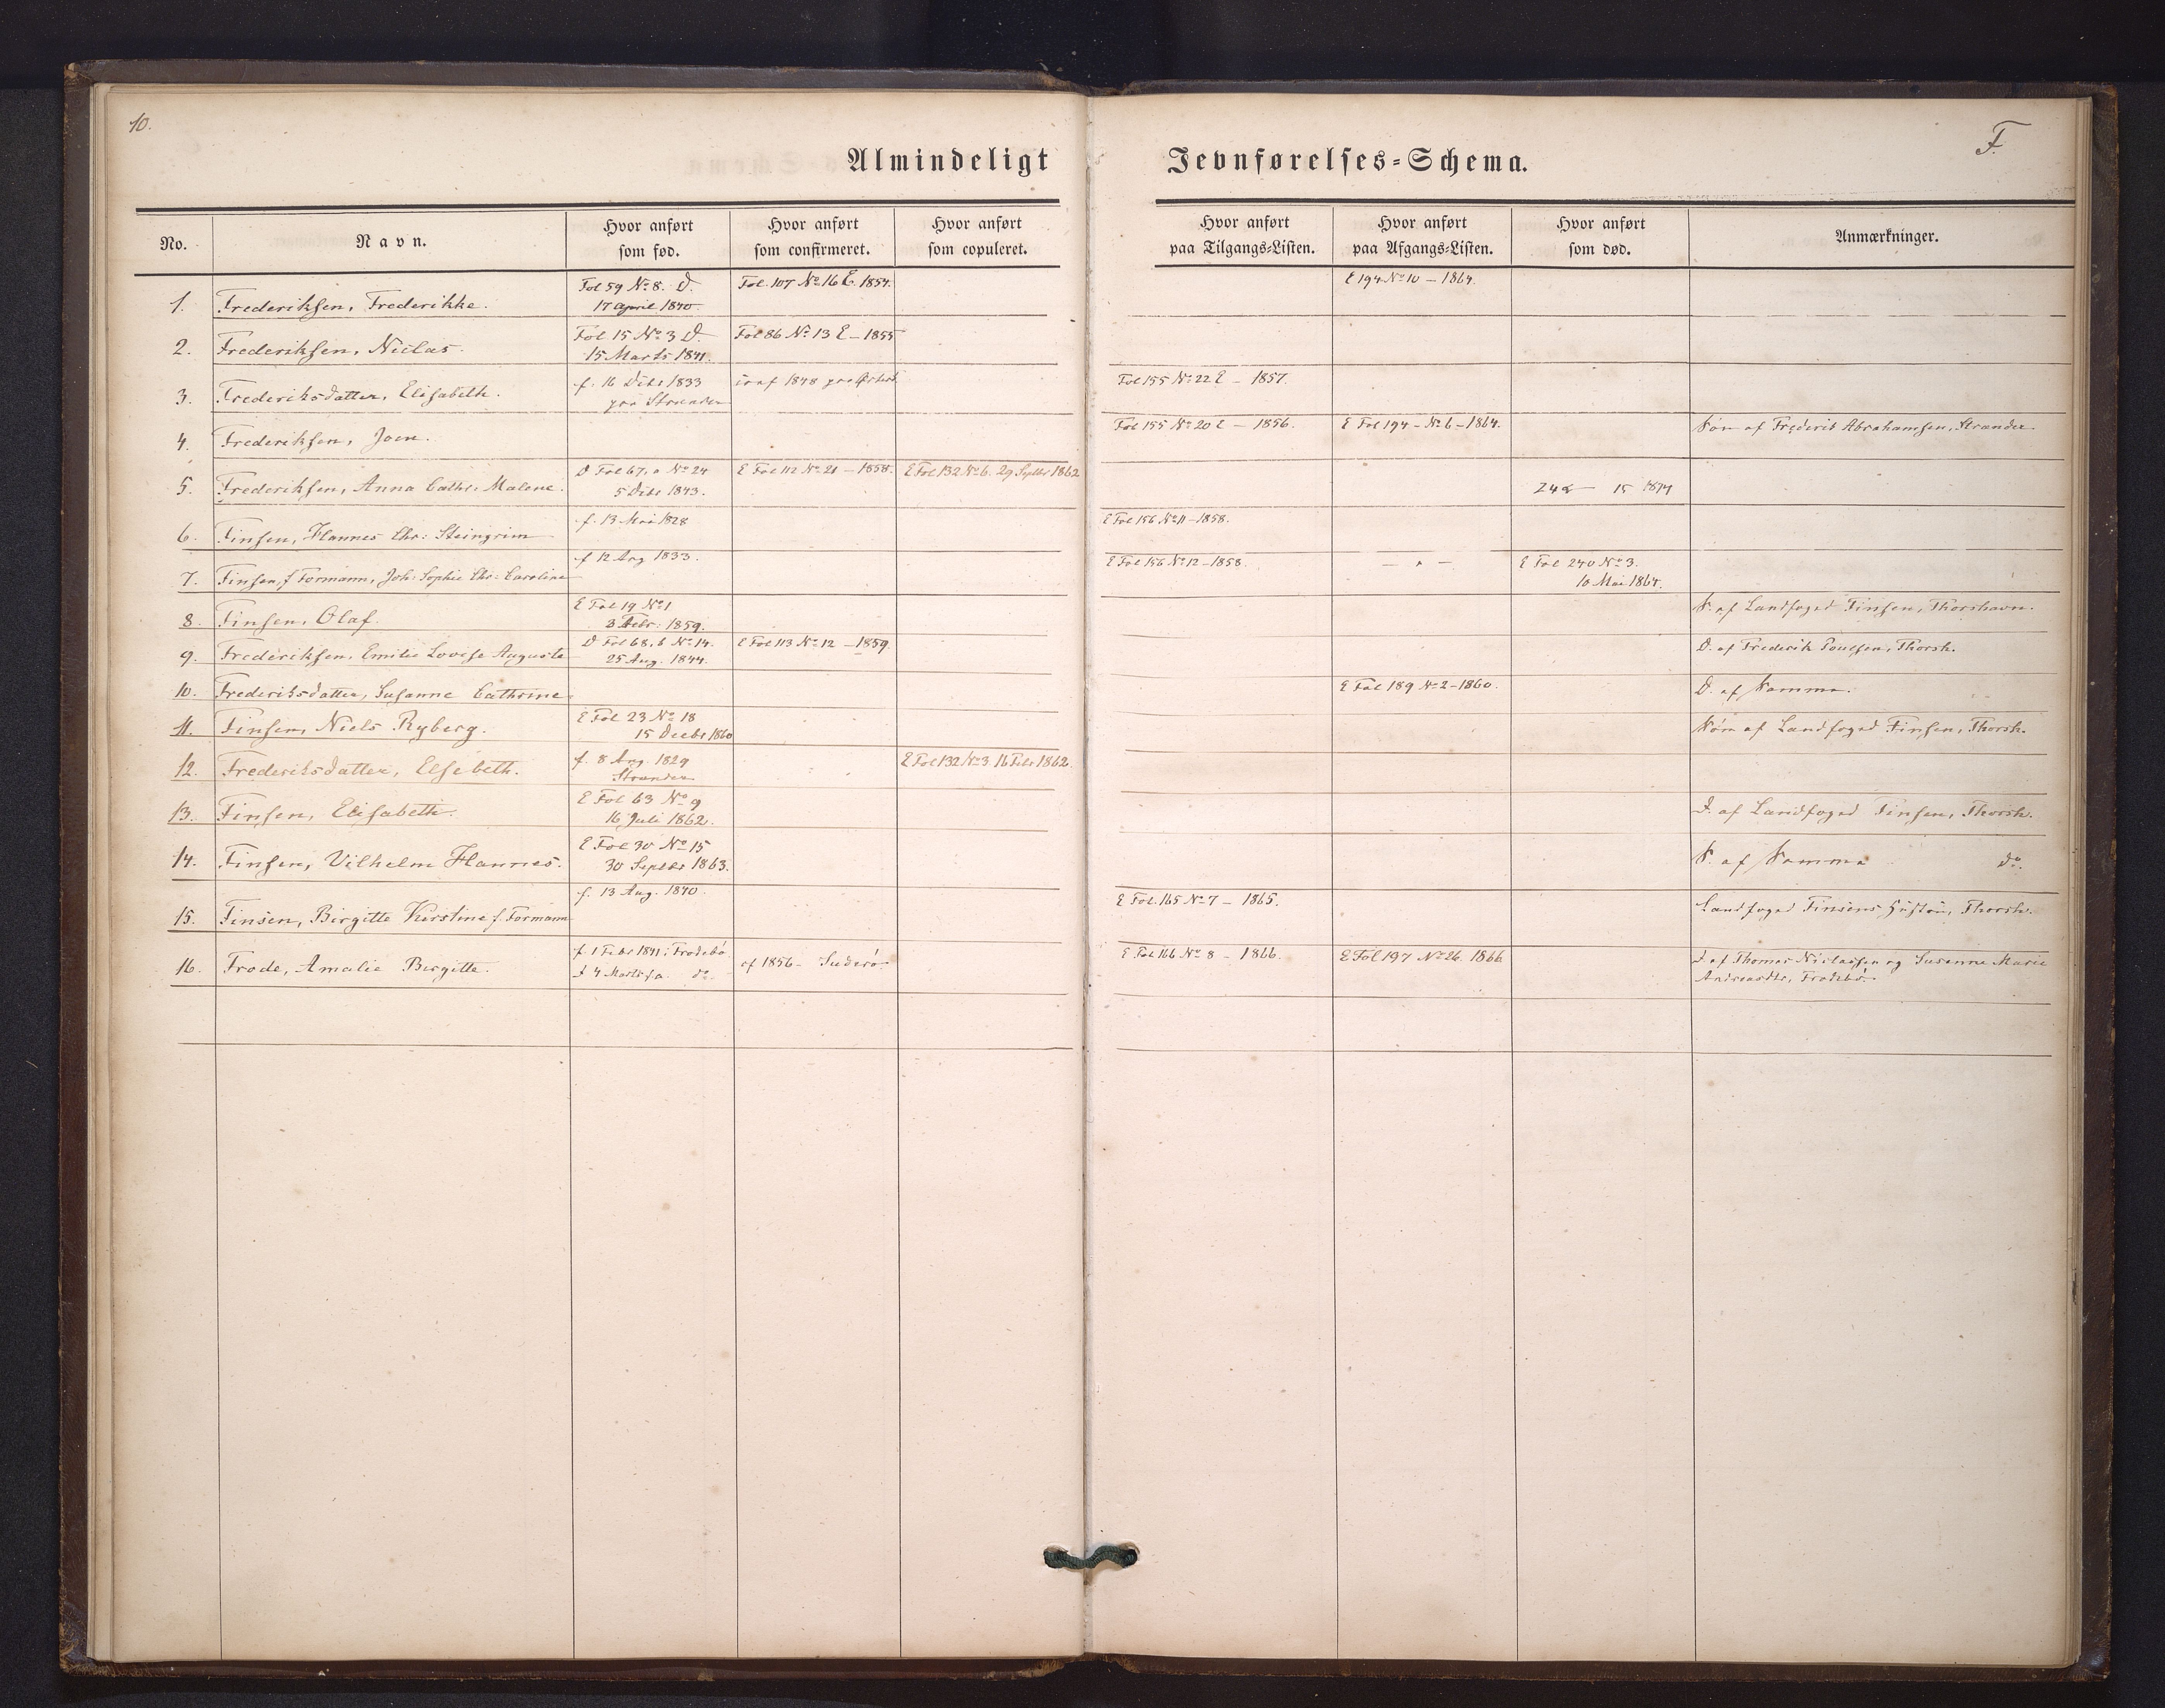 10.
F.
Almindeligt Jevnførelses-Schema.
No. Navn. Hvor anført som fød. Hvor anført som confirmeret. Hvor anført som copuleret. Hvor anført paa Tilgangs-Listen. Hvor anført paa Afgangs-Listen. Hvor anført som død. Anmærkninger.
1. Frederiksen, Frederikke. Fol 59 No 8. D. Fol. 107 No 16 E. 1854. E 194 No 10 - 1864.
17 april 1840.
2. Frederiksen, Niclas. Fol 15 No 3 D. Fol 86 No 13 E - 1855
15 Marts 1841.
3. Frederiksdatter, Elisabeth. f. 16 Decbr 1833 1848 Fol 155 No 22 E - 1857.
paa Strænder
4. Frederiksen, Joen. Fol 155 No 20 E - 1856. E Fol 194 - No 6 - 1864. Søn af Frederik Abrahamsen, Strænder
5. Frederiksen, Anna Cathr. Malene. D Fol 67, a No 24 E Fol 112 No 21 - 1858. E Fol 132 No 6. 29 Septbr 1862
5 Decbr 1843. 15 1874
6. Finsen, Hannes Chr: Steingrim f. 13 Mai 1828 E Fol 156 No 11 - 1858.
7. Finsen, f Formann, Joh: Sophie Chr: Caroline f 12 Aug 1833. E Fol 156 No 12 - 1858. - " - E Fol 240 No 3.
10 Mai 1864.
8. Finsen, Olaf. E Fol 19 No 1 S. af Landfoged Finsen, Thorshavn.
3 Febr: 1859.
9. Frederiksen, Emilie Lovise Auguste D Fol 68, b No 14. E Fol 113 No 12 - 1859. D. af Frederik Poulsen, Thorsh.
25 Aug. 1844.
10. Frederiksdatter, Susanne Cathrine. E Fol 189 No 2 - 1860. D. af Samme.
11. Finsen, Niels Ryberg. E Fol 23 No 18 Søn af Landfoged Finsen, Thorsh.
15 Decbr 1860
12. Frederiksdatter, Elsebeth. f. 8 Aug. 1829 E Fol 132 No 3. 16 Febr 1862.
Strænder
13. Finsen, Elisabeth. E Fol 63 No 9 D. af Landfoged Finsen, Thorsh.
16 Juli 1862.
14. Finsen, Vilhelm Hannes. E Fol 30 No 15 S. af Samme do.
30 Septbr 1863.
15. Finsen, Birgitte Kirstine f. Formann f. 13 Aug. 1840. E Fol. 165 No 7 - 1865. Landfoged Finsens Hustru, Thorsh.
16. Frode, Amalie Birgitte. f. 1 Febr 1841 i Frodebø cf 1856 - Suderø E Fol 166 No 8 - 1866. E Fol 197 No 26. 1866 D af Thomas Niclassen og Susanne Marie
d 4 Marts do. Andreasdtr, Frodebø.